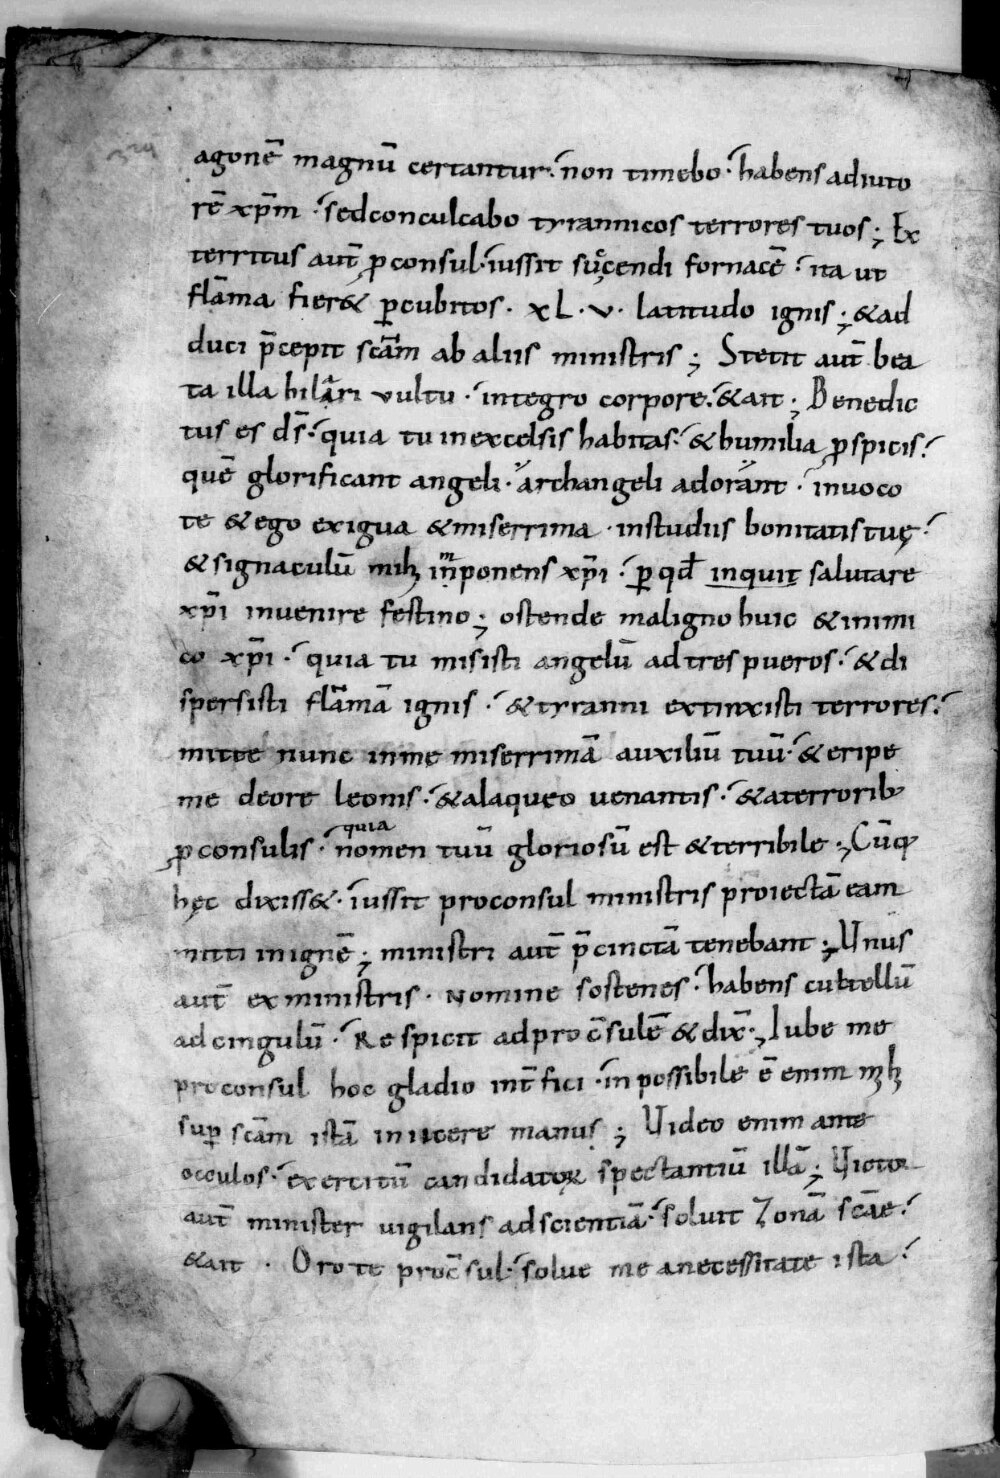 324
agonē magnū certantur · non timebo · habens adiuto
rē xp̄m · sed conculcabo tyrannicos terrores tuos ; Ex
territus aut̄ ꝓconsul · iussit succendi fornacē · ita ut
flāma fier& ꝑ cubitos · xL · v · latitudo ignis ; & ad
duci p̄cepit scām ab aliis ministris ; Stetit aut̄ bea
ta illa hilari vultu · integro corpore · & ait ; Benedic
tus es ds̄ · quia tu in excelsis habitas · & humilia ꝓspicis ·
quē glorificant angeli · archangeli adorant · inuoco
te & ego exigua & miserrima · in studiis bonitatis tuę ·
& signaculū mihi inponens xp̄i · ꝑ qd̄ inquit salutare
xp̄i invenire festino ; ostende maligno huic & inimi
co xp̄i · quia tu misisti angelū ad tres pueros · & di
spersisti flāmā ignis · & tyranni extinxisti terrores ·
mitte nunc in me miserrimā auxiliū tuū · & eripe
me de ore leonis · & a laqueo venantis · & a terrorib;
ꝓconsulis · quia nomen tuū gloriosū est & terribile ; Cūq;
hęc dixiss& · iussit proconsul ministris proiectā eam
mitti in ignē ; ministri aut̄ p̄cinctā tenebant ; Unus
aut̄ ex ministris · nomine sostenes · habens cultellū
ad cingulū · Respicit ad procōsulē & dix̄ ; Iube me
proconsul hoc gladio int̄fici · inpossibile ē enim mihi
suꝑ scām istā iniicere manus ; Video enim ante
occulos · exercitū candidatoꝝ spectantiū illā ; Victor
aut̄ minister vigilans ad scientiā · soluit zonā scāe ·
& ait · Oro te procōsul · solue me a necessitate ista ·